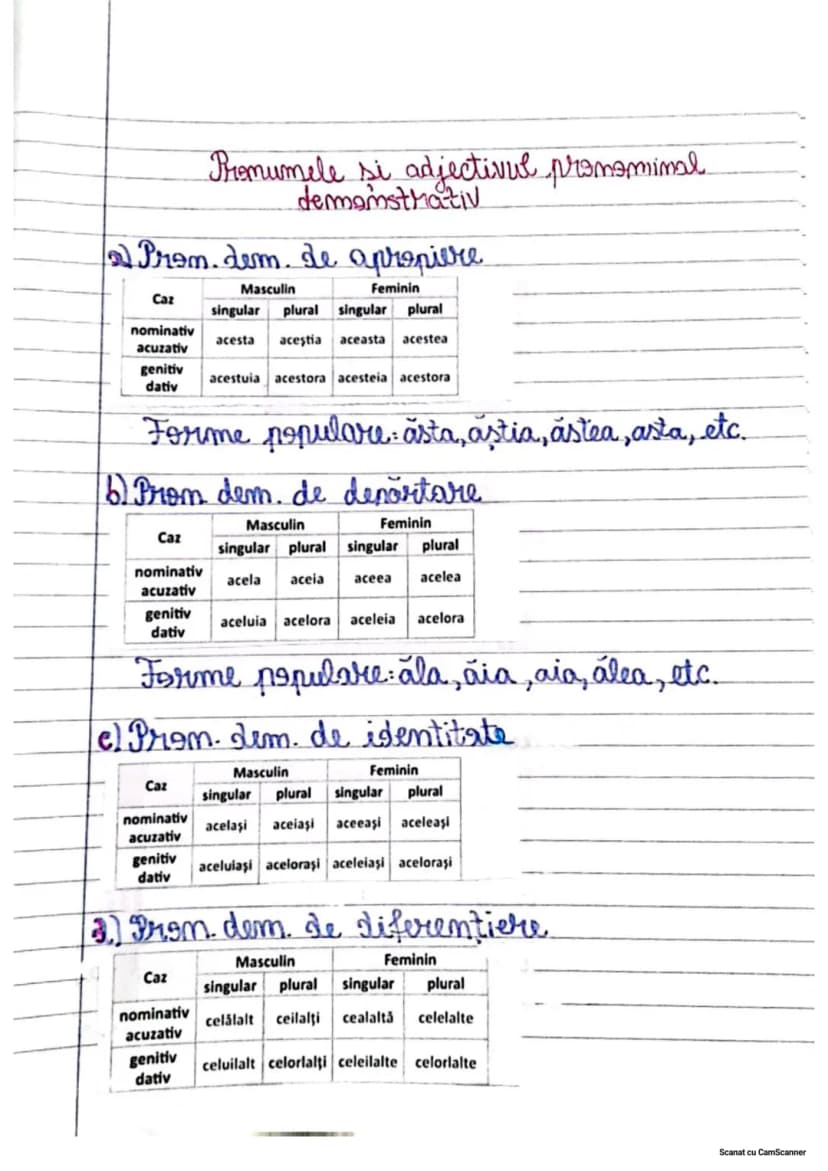 Pronumele și adjectivul pronominal
demonstrativ
a) Pron. dem. de apropiere
Caz Masculin Feminin
singular plural singular plural
nominativ acuzativ acesta aceştia aceasta acestea
genitiv dativ acestuia acestora acesteia acestora
Forme populare: ăsta, ăștia, ăstea, asta, etc.
b) Pron dem. de depărtare
Caz Masculin Feminin
singular plural singular plural
nominativ acuzativ acela aceia aceea acelea
genitiv dativ aceluia acelora aceleia acelora
Forme populare: ăla, ăia, aia, ălea, etc.
c) Pron. dem. de identitate
Caz Masculin Feminin
singular plural singular plural
nominativ acuzativ acelaşi aceiaşi aceeaşi aceleaşi
genitiv dativ aceluiaşi aceloraşi aceleiaşi aceloraşi
d.) Pron. dem. de diferențiere
Caz Masculin Feminin
singular plural singular plural
nominativ acuzativ celălalt ceilalţi cealaltă celelalte
genitiv dativ celuilalt celorlalţi celeilalte celorlalte
Scanat cu CamScanner